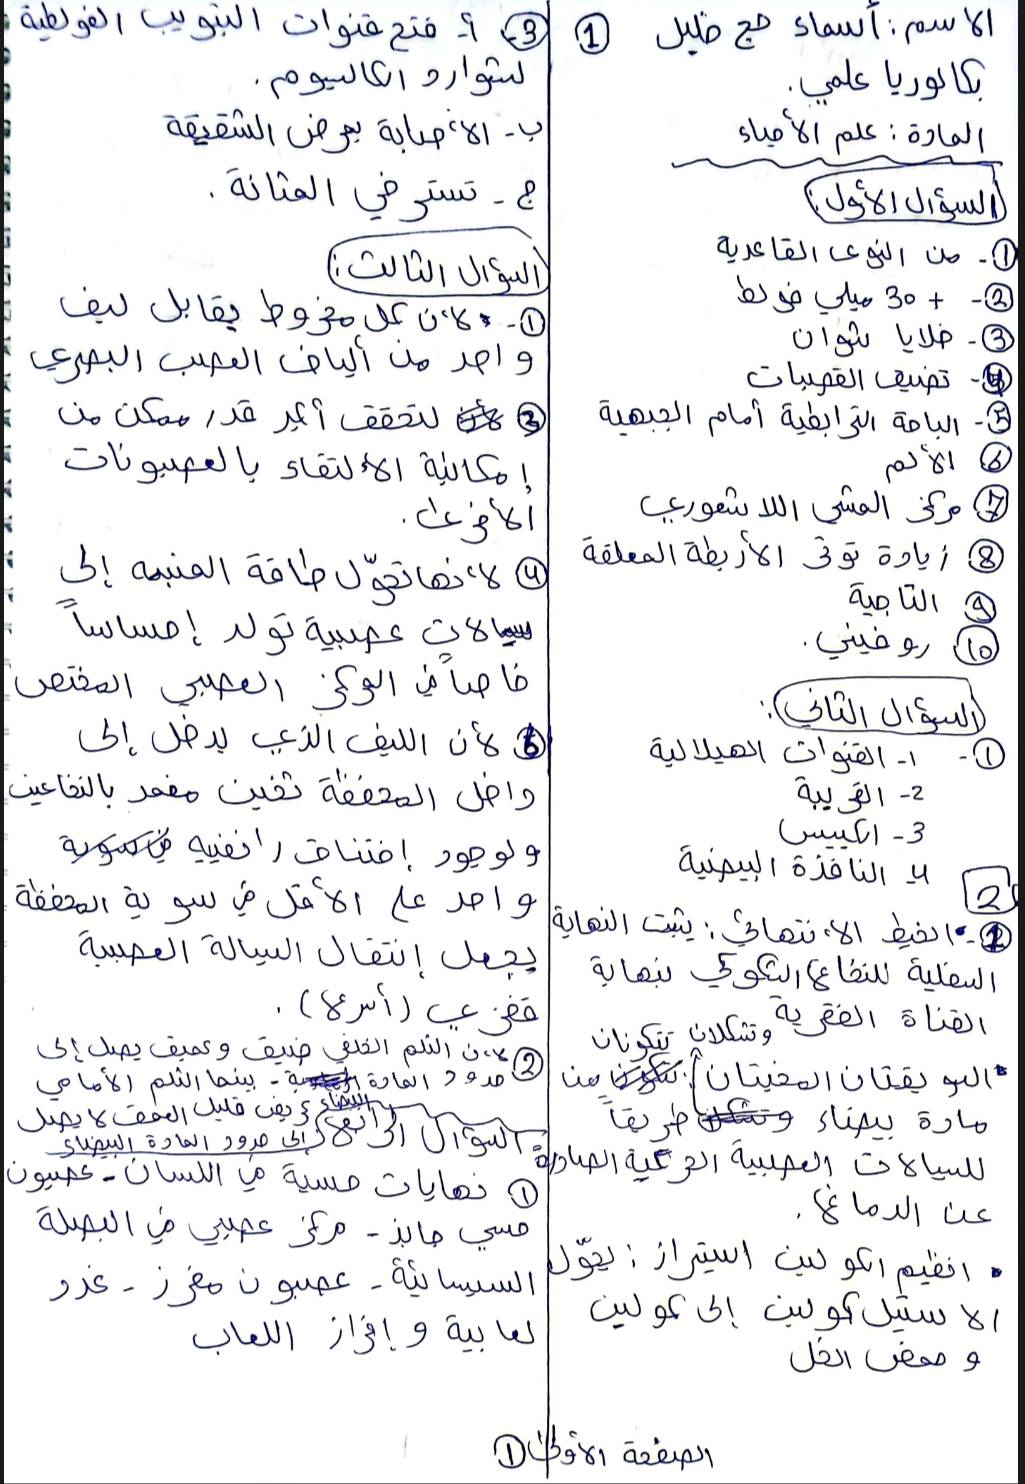 الاسم: أسماء حج خليل ①
بكالوريا علمي.
المادة: علم الأحياء
السؤال الأول:
①- من النوى القاعدية
②- +30 ميلي فولط
③- خلايا شوان
④- تضيق القصبات
⑤- الباحة الترابطية أمام الجبهية
⑥ الألم
⑦ مركز المشي اللا شعوري
⑧ زيادة توتر الأربطة المعلقة
⑨ التاجية
⑩ روفيني.
السؤال الثاني:
①- 1- القنوات الهيلالية
2- القريبة
3- الكييس
4 النافذة البيضية
2
②- • الخيط الانتهائي: يثبت النهاية
السفلية للنخاع الشوكي بنهاية
القناة الفقرية
• السويقتان المخيتان: وتشكلان تتكونان من
مادة بيضاء طريقاً
للسيالات العصبية الحركية الصادرة
عن الدماغ.
• انظيم الكولين استيراز: يحوّل
الاستيل كولين إلى كولين
و حمض الخل
③- أ- فتح قنوات التبويب الفولطية
لشوارد الكالسيوم.
ب- الأصابة بمرض الشقيقة
ج- تسترخي المثانة.
السؤال الثالث:
①- لأن كل مخروط يقابل ليف
واحد من ألياف العصب البصري
③ لتحقق أكبر قدر ممكن من
إمكانية الألتقاء بالعصبونات
الأخرى.
④ لأنها تحوّل طاقة المنبه إلى
سيالات عصبية تولد إحساساً
خاصاً في المركز العصبي المختص
⑤ لأن الليف الذي يدخل إلى
داخل المحفظة ثخين مغمد بالنخاعين
ولوجود إختناق رانفيه
واحد على الأقل في سوية المحفظة
يجعل إنتقال السيالة العصبية
قفزي (أسرع).
② لأن الثلم الخلفي ضيق وعميق يصل إلى
حدود المادة - بينما الثلم الأمامي
عريض قليل العمق لا يصل
إلى حدود المادة البيضاء
السؤال الرابع
① نهايات حسية في اللسان - عصبون
حسي جابذ - مركز عصبي في البصلة
السيسائية - عصبون مفرز - غدد
لعابية وإفراز اللعاب
الصفحة الأولى ①